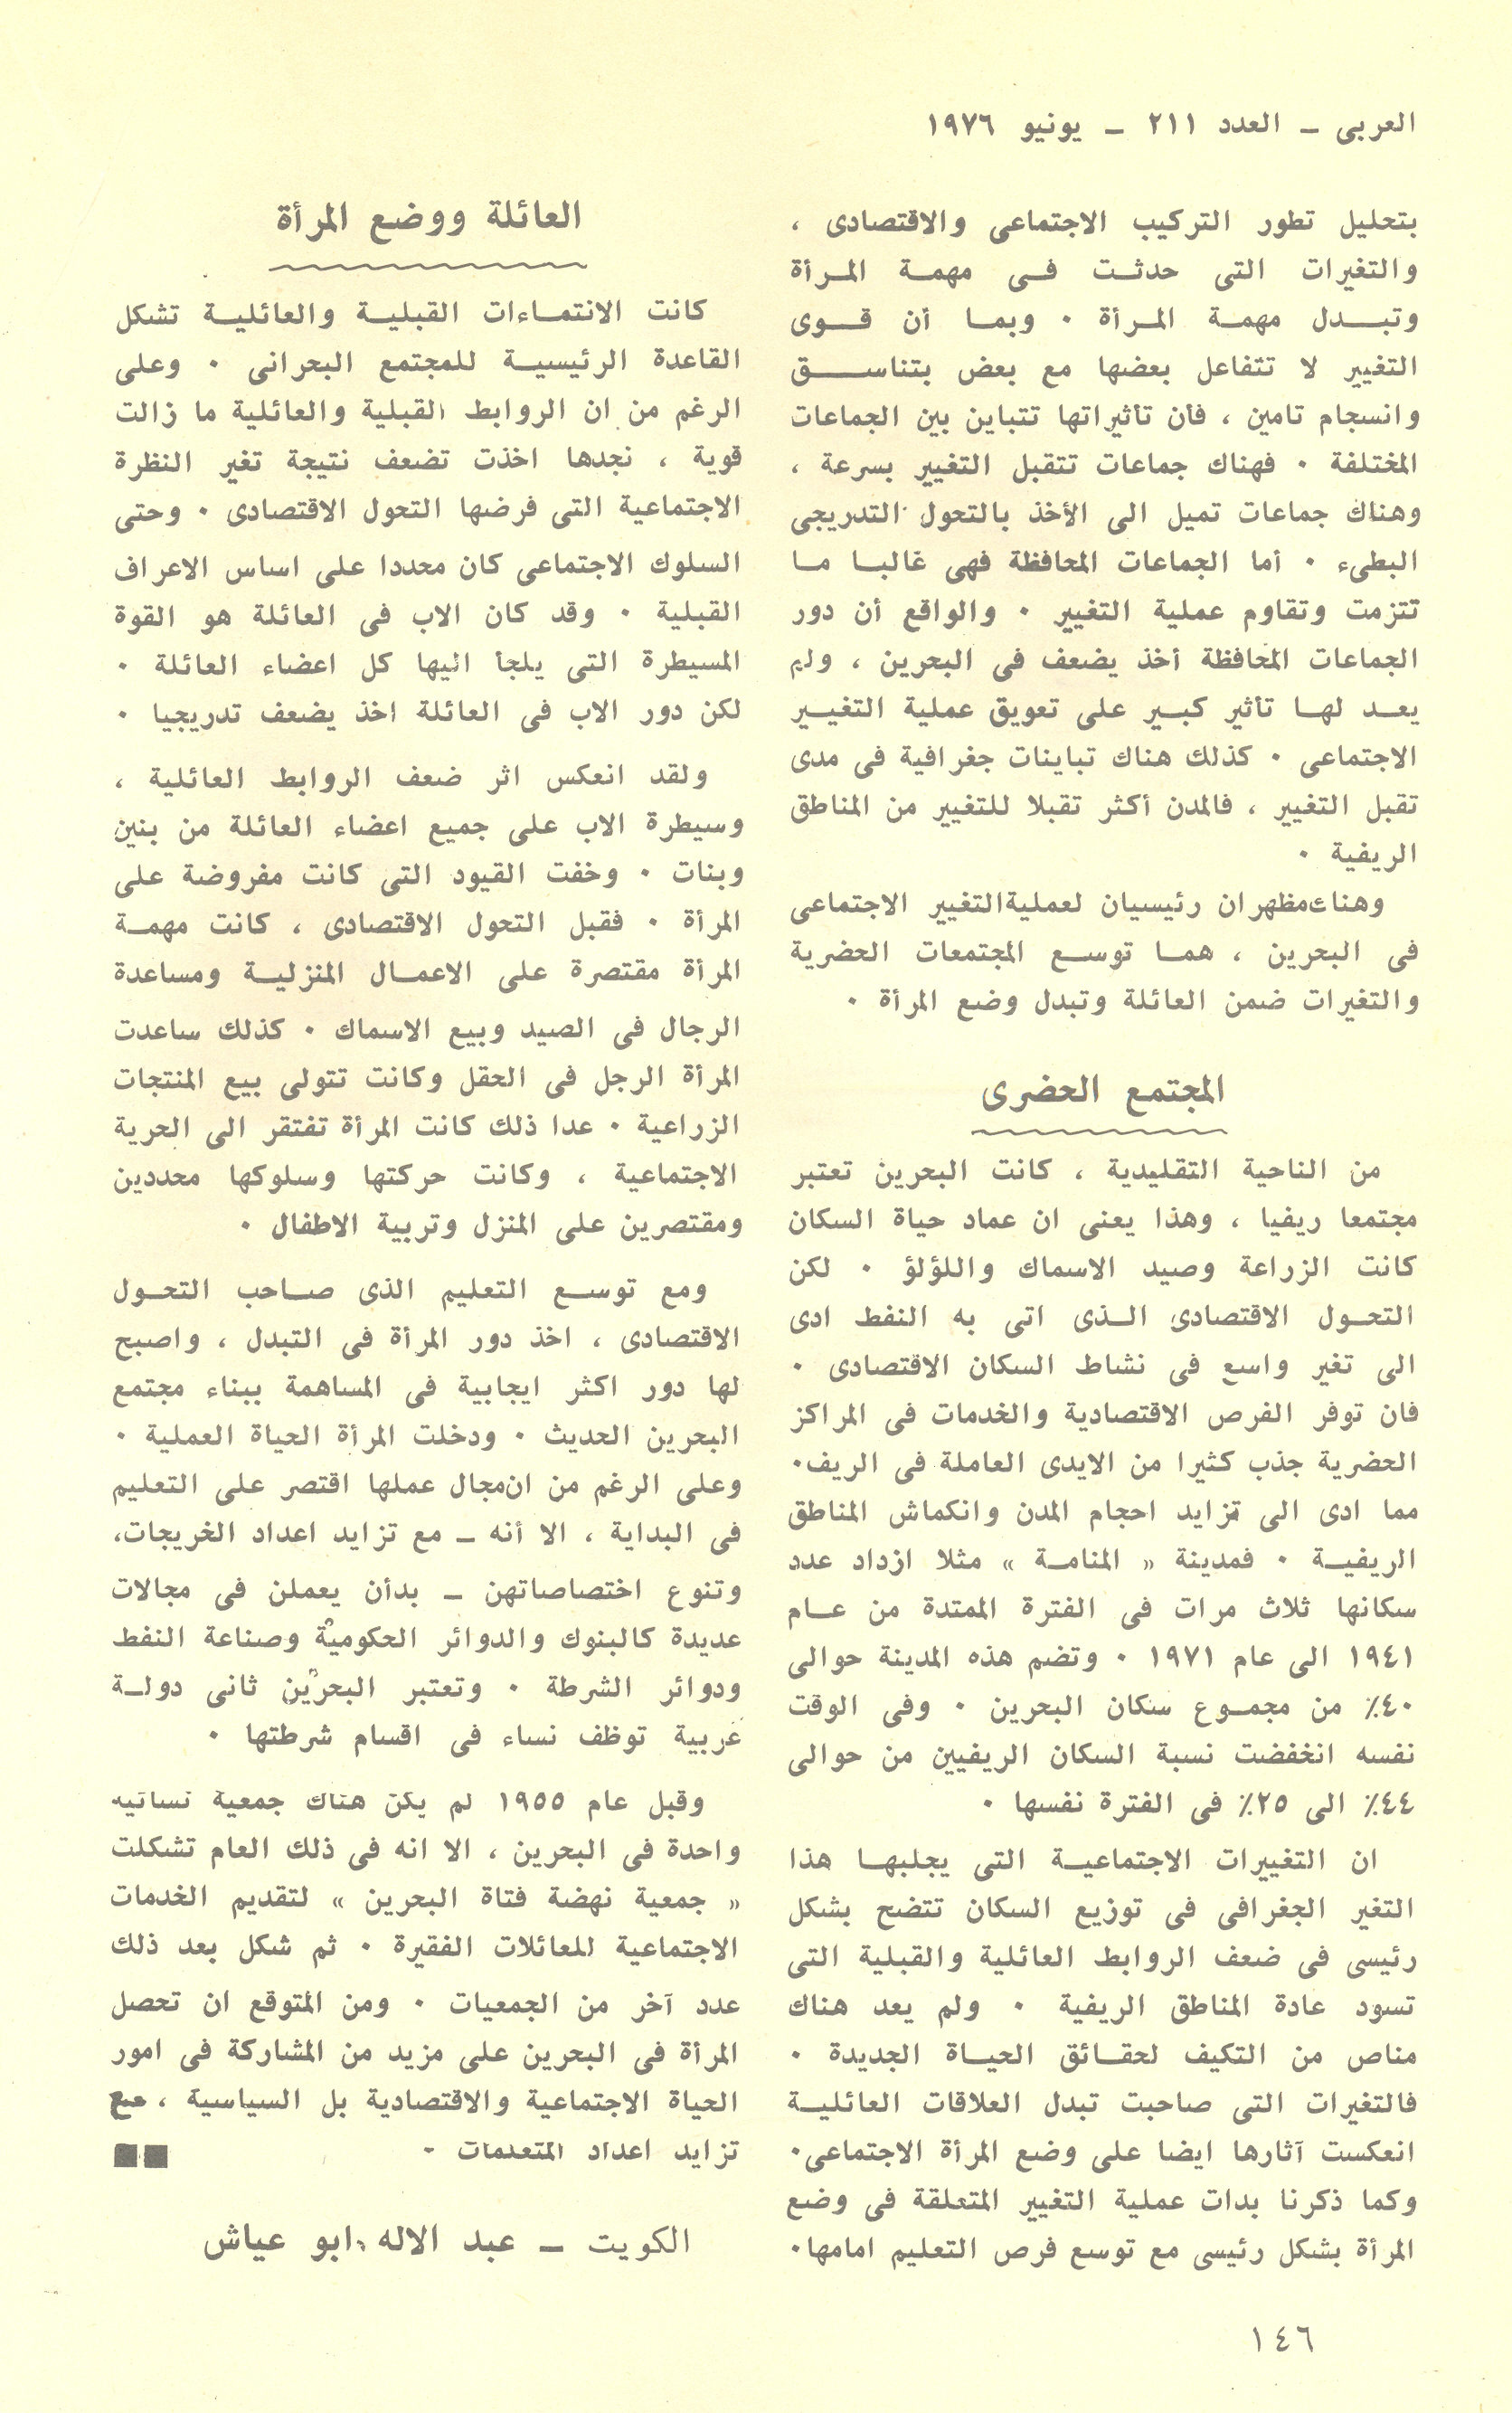 العربى – العدد ٢١١ – يونيو ١٩٧٦
بتحليل تطور التركيب الاجتماعى والاقتصادى ،
والتغيرات التى حدثت فى مهمة المرأة
وتبدل مهمة المرأة ٠ وبما أن قوى
التغيير لا تتفاعل بعضها مع بعض بتناسق
وانسجام تامين ، فأن تأثيراتها تتباين بين الجماعات
المختلفة ٠ فهناك جماعات تتقبل التغيير بسرعة ،
وهناك جماعات تميل الى الأخذ بالتحول التدريجى
البطىء ٠ أما الجماعات المحافظة فهى غالبا ما
تتزمت وتقاوم عملية التغيير ٠ والواقع أن دور
الجماعات المحافظة أخذ يضعف فى البحرين ، ولم
يعد لها تأثير كبير على تعويق عملية التغيير
الاجتماعى ٠ كذلك هناك تباينات جغرافية فى مدى
تقبل التغيير ، فالمدن أكثر تقبلا للتغيير من المناطق
الريفية ٠
وهناك مظهران رئيسيان لعملية التغيير الاجتماعى
فى البحرين ، هما توسع المجتمعات الحضرية
والتغيرات ضمن العائلة وتبدل وضع المرأة ٠
المجتمع الحضرى
من الناحية التقليدية ، كانت البحرين تعتبر
مجتمعا ريفيا ، وهذا يعنى ان عماد حياة السكان
كانت الزراعة وصيد الاسماك واللؤلؤ ٠ لكن
التحول الاقتصادى الذى اتى به النفط ادى
الى تغير واسع فى نشاط السكان الاقتصادى ٠
فان توفر الفرص الاقتصادية والخدمات فى المراكز
الحضرية جذب كثيرا من الايدى العاملة فى الريف٠
مما ادى الى تزايد احجام المدن وانكماش المناطق
الريفية ٠ فمدينة « المنامة » مثلا ازداد عدد
سكانها ثلاث مرات فى الفترة الممتدة من عام
١٩٤١ الى عام ١٩٧١ ٠ وتضم هذه المدينة حوالى
٤٠٪ من مجموع سكان البحرين ٠ وفى الوقت
نفسه انخفضت نسبة السكان الريفيين من حوالى
٤٤٪ الى ٢٥٪ فى الفترة نفسها ٠
ان التغييرات الاجتماعية التى يجلبها هذا
التغير الجغرافى فى توزيع السكان تتضح بشكل
رئيسى فى ضعف الروابط العائلية والقبلية التى
تسود عادة المناطق الريفية ٠ ولم يعد هناك
مناص من التكيف لحقائق الحياة الجديدة ٠
فالتغيرات التى صاحبت تبدل العلاقات العائلية
انعكست آثارها ايضا على وضع المرأة الاجتماعى٠
وكما ذكرنا بدات عملية التغيير المتعلقة فى وضع
المرأة بشكل رئيسى مع توسع فرص التعليم امامها٠
العائلة ووضع المرأة
كانت الانتماءات القبلية والعائلية تشكل
القاعدة الرئيسية للمجتمع البحرانى ٠ وعلى
الرغم من ان الروابط القبلية والعائلية ما زالت
قوية ، نجدها اخذت تضعف نتيجة تغير النظرة
الاجتماعية التى فرضها التحول الاقتصادى ٠ وحتى
السلوك الاجتماعى كان محددا على اساس الاعراف
القبلية ٠ وقد كان الاب فى العائلة هو القوة
المسيطرة التى يلجأ اليها كل اعضاء العائلة ٠
لكن دور الاب فى العائلة اخذ يضعف تدريجيا ٠
ولقد انعكس اثر ضعف الروابط العائلية ،
وسيطرة الاب على جميع اعضاء العائلة من بنين
وبنات ٠ وخفت القيود التى كانت مفروضة على
المرأة ٠ فقبل التحول الاقتصادى ، كانت مهمة
المرأة مقتصرة على الاعمال المنزلية ومساعدة
الرجال فى الصيد وبيع الاسماك ٠ كذلك ساعدت
المرأة الرجل فى الحقل وكانت تتولى بيع المنتجات
الزراعية ٠ عدا ذلك كانت المرأة تفتقر الى الحرية
الاجتماعية ، وكانت حركتها وسلوكها محددين
ومقتصرين على المنزل وتربية الاطفال ٠
ومع توسع التعليم الذى صاحب التحول
الاقتصادى ، اخذ دور المرأة فى التبدل ، واصبح
لها دور اكثر ايجابية فى المساهمة ببناء مجتمع
البحرين الحديث ٠ ودخلت المرأة الحياة العملية ٠
وعلى الرغم من ان مجال عملها اقتصر على التعليم
فى البداية ، الا أنه – مع تزايد اعداد الخريجات،
وتنوع اختصاصاتهن – بدأن يعملن فى مجالات
عديدة كالبنوك والدوائر الحكومية وصناعة النفط
ودوائر الشرطة ٠ وتعتبر البحرين ثانى دولة
عربية توظف نساء فى اقسام شرطتها ٠
وقبل عام ١٩٥٥ لم يكن هناك جمعية نسائية
واحدة فى البحرين ، الا انه فى ذلك العام تشكلت
« جمعية نهضة فتاة البحرين » لتقديم الخدمات
الاجتماعية للعائلات الفقيرة ٠ ثم شكل بعد ذلك
عدد آخر من الجمعيات ٠ ومن المتوقع ان تحصل
المرأة فى البحرين على مزيد من المشاركة فى امور
الحياة الاجتماعية والاقتصادية بل السياسية ، مع
تزايد اعداد المتعلمات ٠
الكويت – عبد الاله ابو عياش
١٤٦